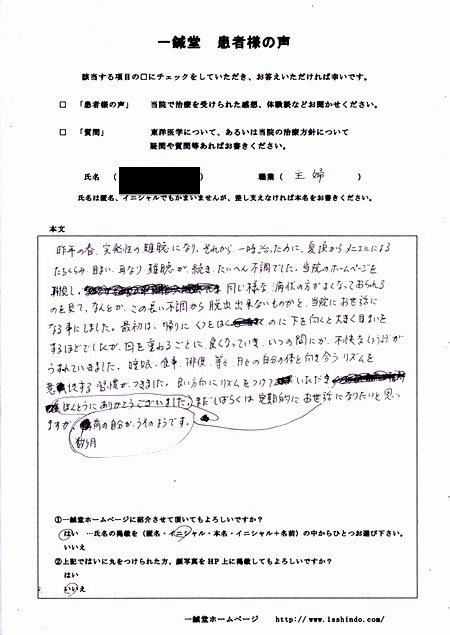 一鍼堂 患者様の声
該当する項目の□にチェックをしていただき、お答えいただければ幸いです。
□ 「患者様の声」 当院で治療を受けられた感想、体験談などお聞かせください。
□ 「質問」 東洋医学について、あるいは当院の治療方針について
疑問や質問等あればお書きください。
氏名 ( 職業 ( 主婦 )
氏名は匿名、イニシャルでもかまいませんが、差し支えなければ本名をお書きください。
本文
昨年の春、突発性の難聴になり、それから一時治ったために、夏頃からメニエルによる
たちくらみ、目まい、耳なり、難聴が続き、たいへん不調でした。当院のホームページを
拝見し、同じ様な病状の方がよくなっておられる
のを見て、なんとか、この長い不調から脱出出来ないものかと、当院にお世話に
なる事にしました。最初は、帰りにくつをはくのに下を向くと大きく目まいを
するほどでしたが、回を重ねるごとに、良くなっていき、いつの間にか、不快な
うすれていきました。睡眠、食事、排便、等々、日々の自分の体と向き合うリズムを
意識する習慣がつきました。良い方向にリズムをつけていただき
ほんとうにありがとうございました。まだしばらくは定期的にお世話になりたいと思い
ますが、前の自分が、うそのようです。
数ヶ月
①一鍼堂ホームページに紹介させて頂いてもよろしいですか？
はい …氏名の掲載を（匿名・イニシャル・本名・イニシャル＋名前）の中からひとつお選び下さい。
いいえ
②上記ではいに丸をつけられた方、顔写真をHP上に掲載してもよろしいですか？
はい
いいえ
一鍼堂ホームページ http://www.1sshindo.com/